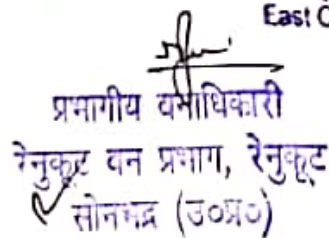 East
प्रभागीय वनाधिकारी
रेनुकूट वन प्रभाग, रेनुकूट
सोनभद्र (उ०प्र०)